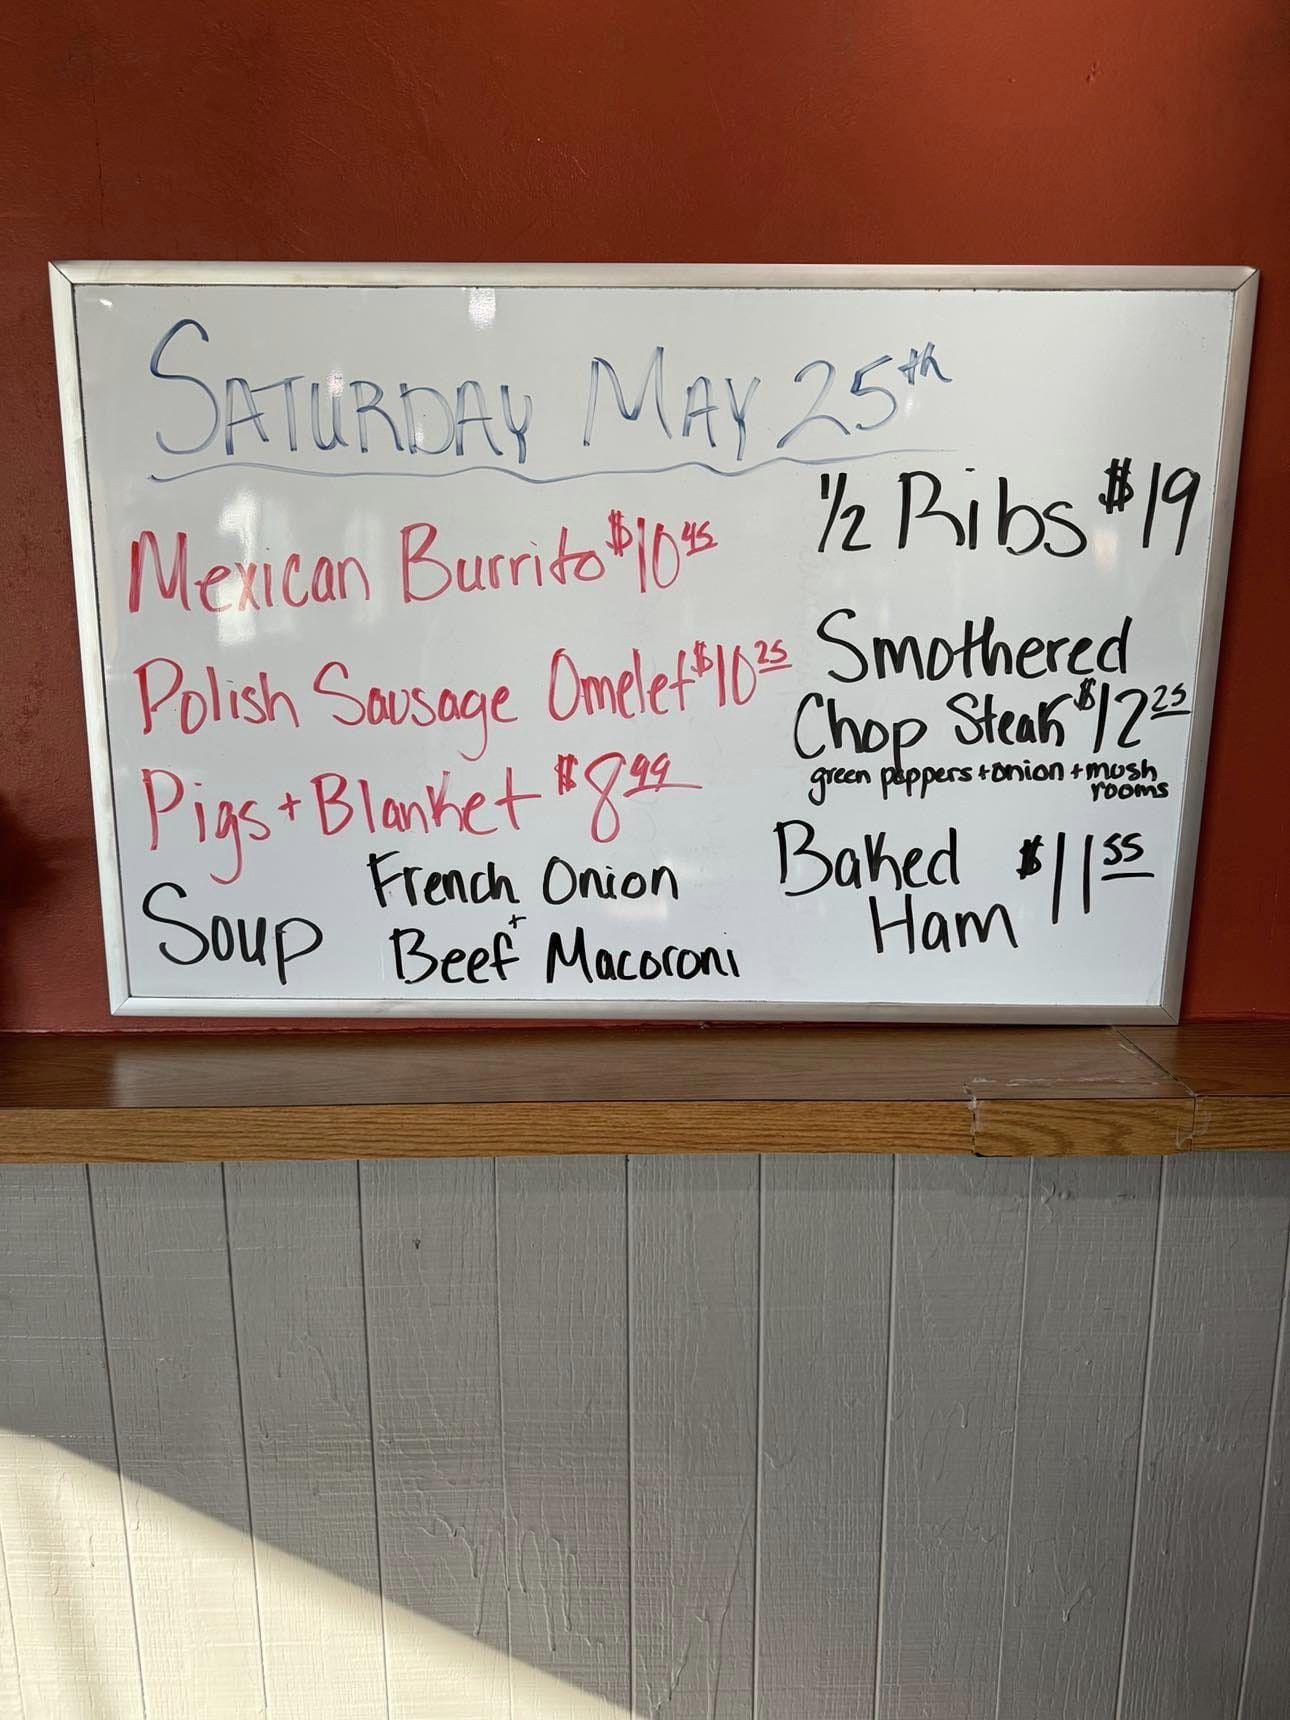 SATURDAY MAY 25th
Mexican Burrito $10 45
Polish Sausage Omelet $10 25
Pigs + Blanket $8 99
Soup
French Onion
+
Beef Macoroni
1/2 Ribs $19
Smothered
Chop Steak $12 25
green peppers + onion + mush
rooms
Baked $11 55
Ham